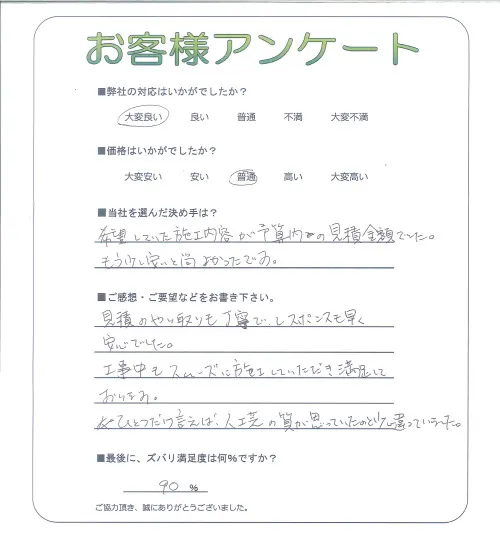 お客様アンケート
■弊社の対応はいかがでしたか？
大変良い 良い 普通 不満 大変不満
■価格はいかがでしたか？
大変安い 安い 普通 高い 大変高い
■当社を選んだ決め手は？
希望していた施工内容が予算内の見積金額でした。
もう少し安いと尚よかったです。
■ご感想・ご要望などをお書き下さい。
見積のやり取りも丁寧で、レスポンスも早く
安心でした。
工事中もスムーズに施工していただき満足して
おります。
ひとつだけ言えば、人工芝の質が思っていたのと少し違っていました。
■最後に、ズバリ満足度は何％ですか？
90 %
ご協力頂き、誠にありがとうございました。